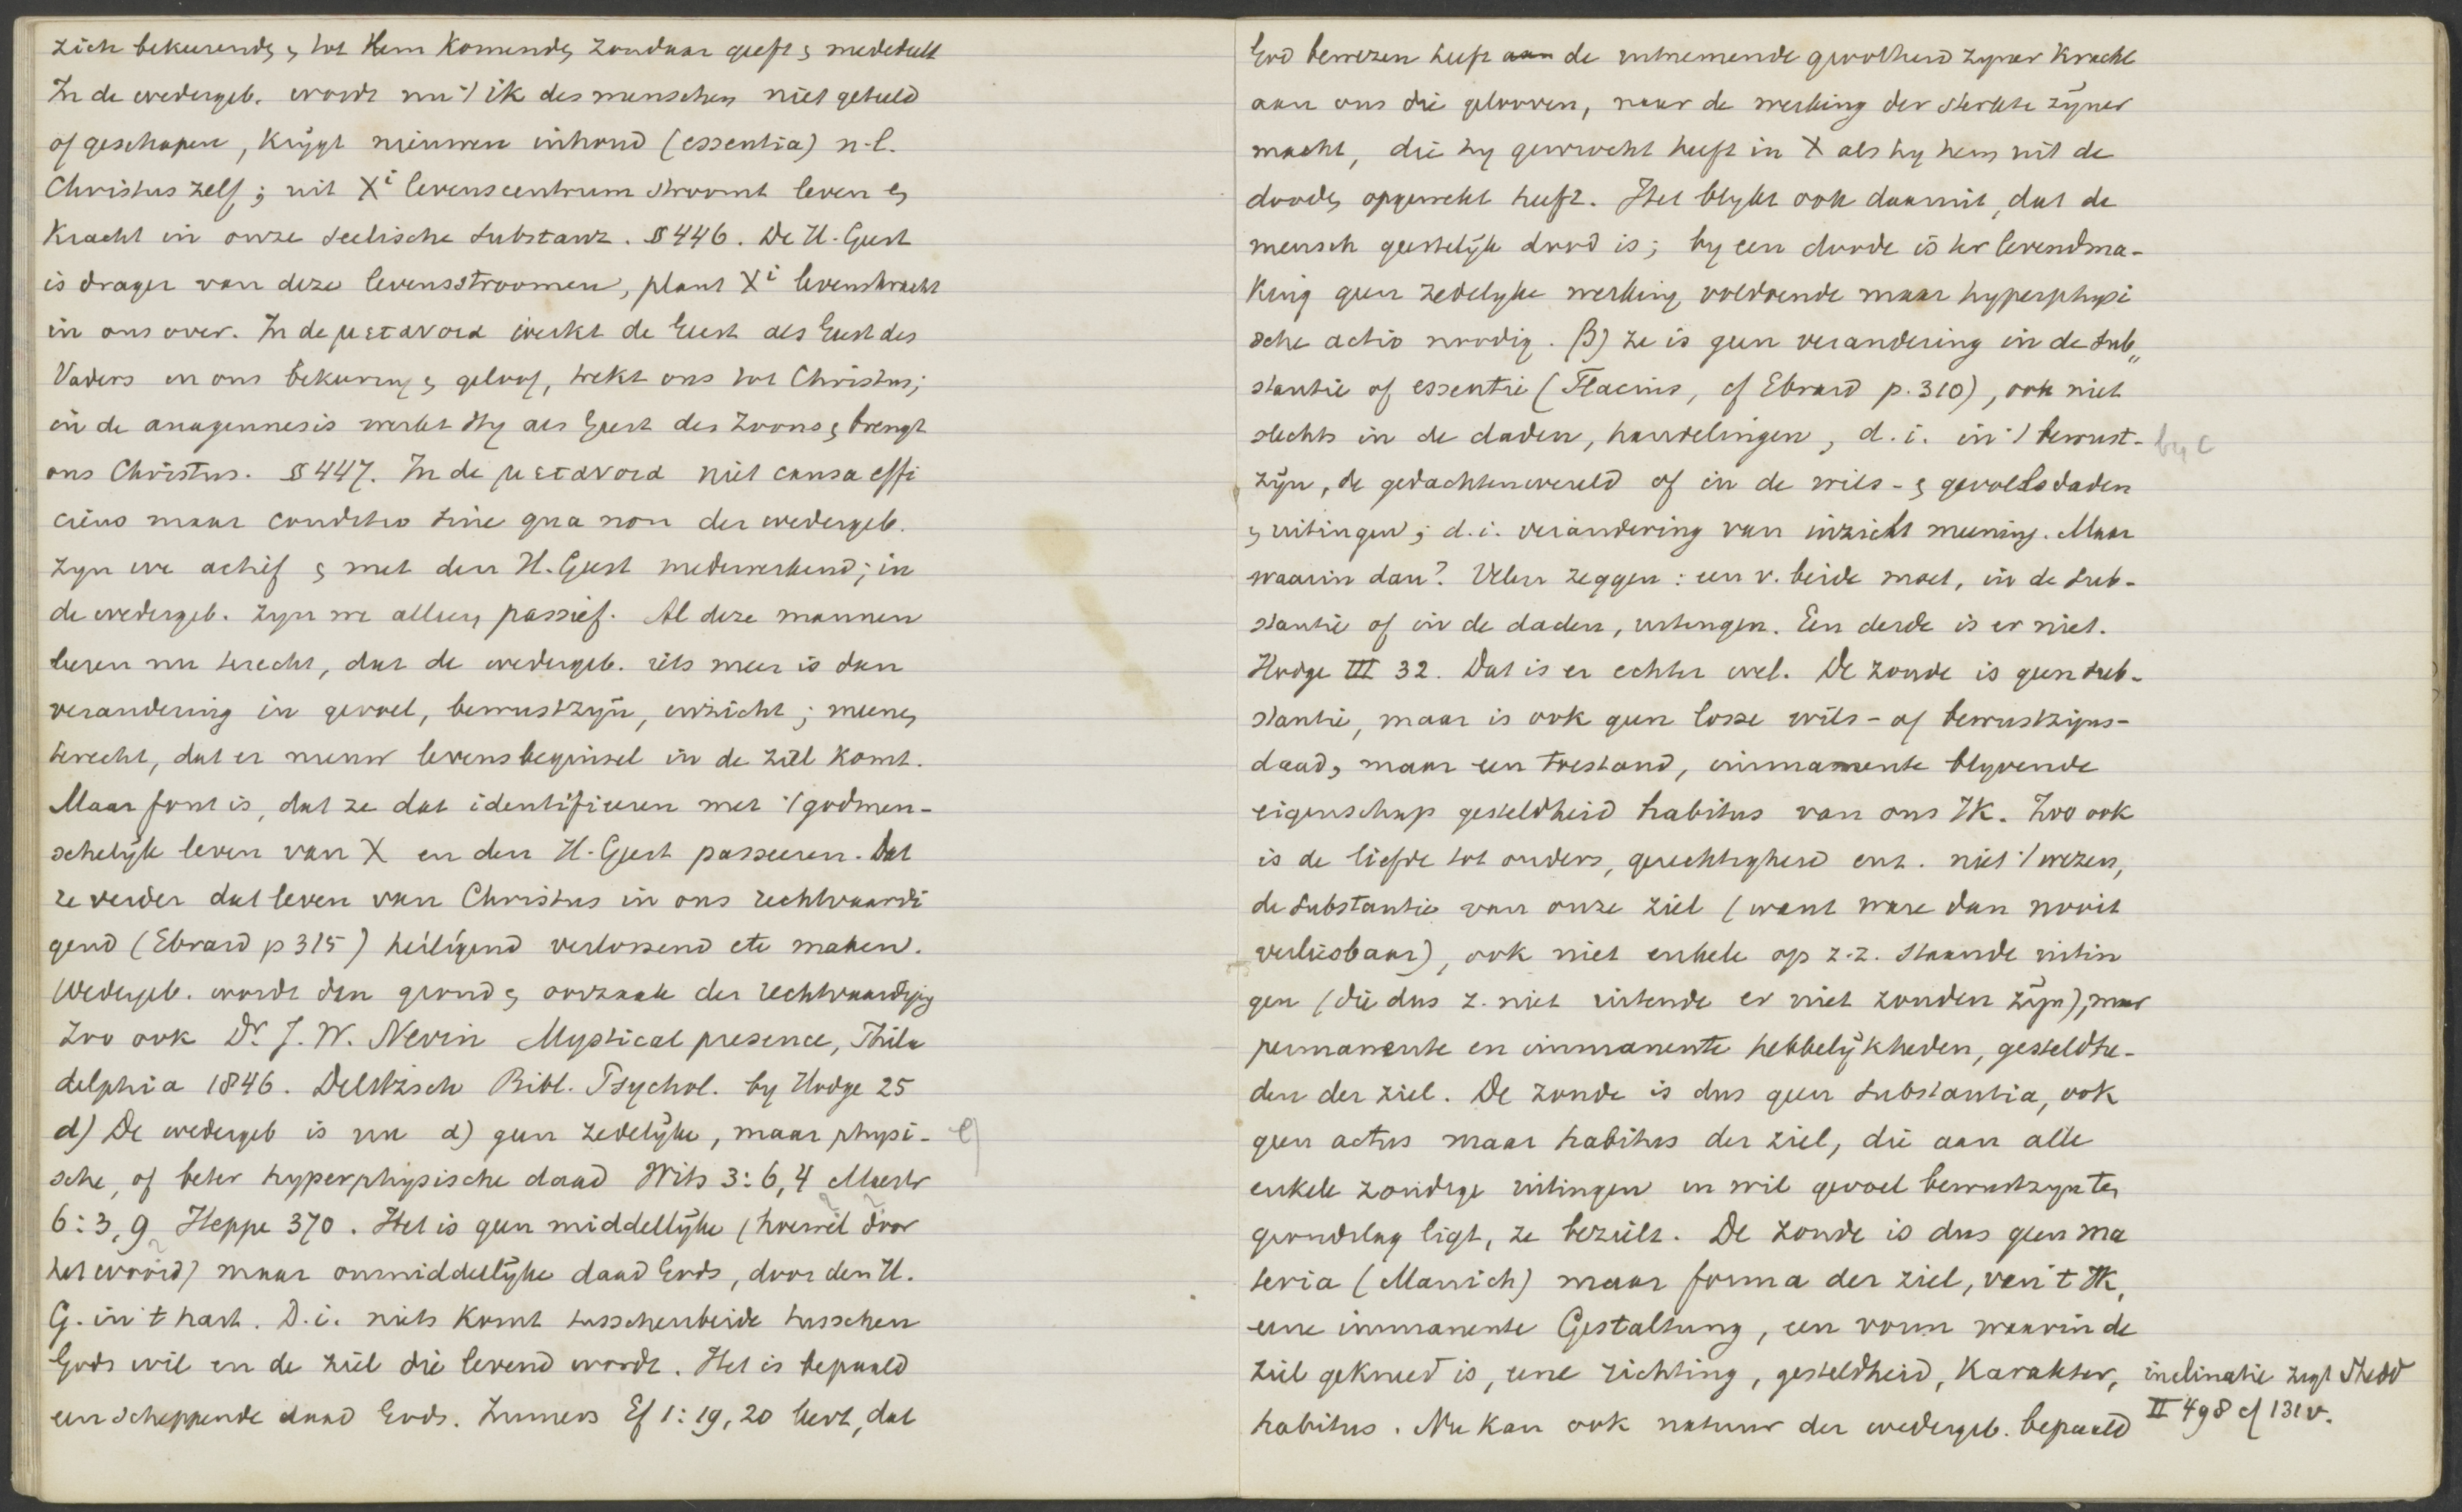 zich bekeerende, tot Hem komende zondaar geeft, mededeelt
In de wedergeb. wordt nu 't ik des menschen niet geteeld
of geschapen, krijgt nieuwen inhoud (essentia) n.l.
Christus zelf; uit Xi levenscentrum stroomt leven en
kracht in onze seelische substanz. § 446. De H. Geest
is drager van deze levensstroomen, plant Xi levenskracht
in ons over. In de μετανοια werkt de Geest als Geest des
Vaders in ons bekeering, geloof, trekt ons tot Christus;
in de anagennesis werkt Hy als Geest des Zoons, brengt
ons Christus. § 447. In de μετανοια niet causa effi
ciens maar conditio sine qua non der wedergeb.
zyn we actief, met den H. Geest medewerkend; in
de wedergeb. zyn we alleen passief. Al deze mannen
leeren nu terecht, dat de wedergeb. iets meer is dan
verandering in gevoel, bewustzijn, inzicht; meenen
terecht, dat er nieuw levensbeginsel in de ziel komt.
Maar fout is, dat ze dat identifieeren met 't godmen-
schelijk leven van X en den H. Geest passeeren. Dat
ze verder dat leven van Christus in ons rechtvaardi
gend (Ebrard p 315) heiligend verlossend etc maken.
Wedergeb. wordt dan grond, oorzaak der rechtvaardiging
Zoo ook Dr. J. W. Nevin Mystical presence, Phila
delphia 1846. Delitzsch Bibl. Psychol. by Hodge 25
d) De wedergeb is nu α) geen zedelijke, maar physi- e)
sche, of beter hyperphysische daad Wits 3:6,4 Mastr
6:3,9 Heppe 370. Het is geen middellijke (hoewel door
het woord) maar onmiddellijke daad Gods, door den H.
G. in 't hart. D.i. niets komt tusschenbeide tusschen
Gods wil en de ziel die levend wordt. Het is bepaald
een scheppende daad Gods. Immers Ef 1:19,20 leert, dat
God bewezen heeft aan de uitnemende grootheid zyner kracht
aan ons die gelooven, naar de werking der sterkte zijner
macht, die hy gewrocht heeft in X als hy hem uit de
dooden opgewekt heeft. Het blykt ook daaruit, dat de
mensch geestelijk dood is; by een doode is ter levendma-
king geen zedelyke werking voldoende maar hyperphysi
sche actio noodig. β) Ze is geen verandering in de sub„
stantie of essentie (Flacius, cf Ebrard p. 310), ook niet
slechts in de daden, handelingen, d.i. in 't bewust- by c
zijn, de gedachtenwereld of in de wils- en gevoelsdaden
en uitingen; d.i. verandering van inzicht meening. Maar
waarin dan? Velen zeggen: een v. beide moet, in de sub-
stantie of in de daden, uitingen. Een derde is er niet.
Hodge III 32. Dat is er echter wel. De zonde is geen sub-
stantie, maar is ook geen losse wils- of bewustzijns-
daad, maar een toestand, immanente blyvende
eigenschap gesteldheid habitus van ons Ik. Zoo ook
is de liefde tot ouders, gerechtigheid enz. niet 't wezen,
de substantie van onze ziel (want ware dan nooit
verliesbaar), ook niet enkele op z.z. staande uitin
gen (die dus z. niet uitende er niet zouden zijn), maar
permanente en immanente hebbelijkheden, gesteldhe-
den der ziel. De zonde is dus geen substantia, ook
geen actus maar habitus der ziel, die aan alle
enkele zondige uitingen in wil gevoel bewustzyn ten
grondslag ligt, ze bezielt. De zonde is dus geen ma
teria (Manich) maar forma der ziel, van 't Ik,
eene immanente Gestaltung, een vorm waarin de
ziel gekneed is, eene richting, gesteldheid, karakter, inclinatie zegt Shedd
habitus. Nu kan ook natuur der wedergeb. bepaald II 498 cf 131 v.